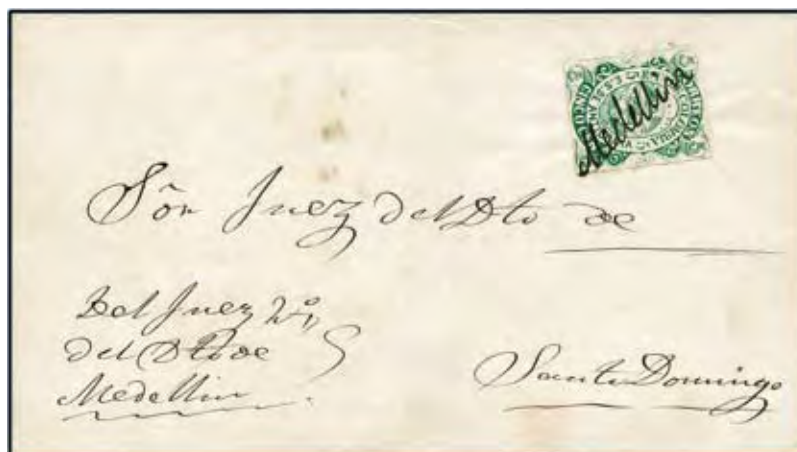 Medellin
COLOMBIA
Sôr Juez del Dto de
Del Juez 2º
del Dto de
Medellin
Santo Domingo